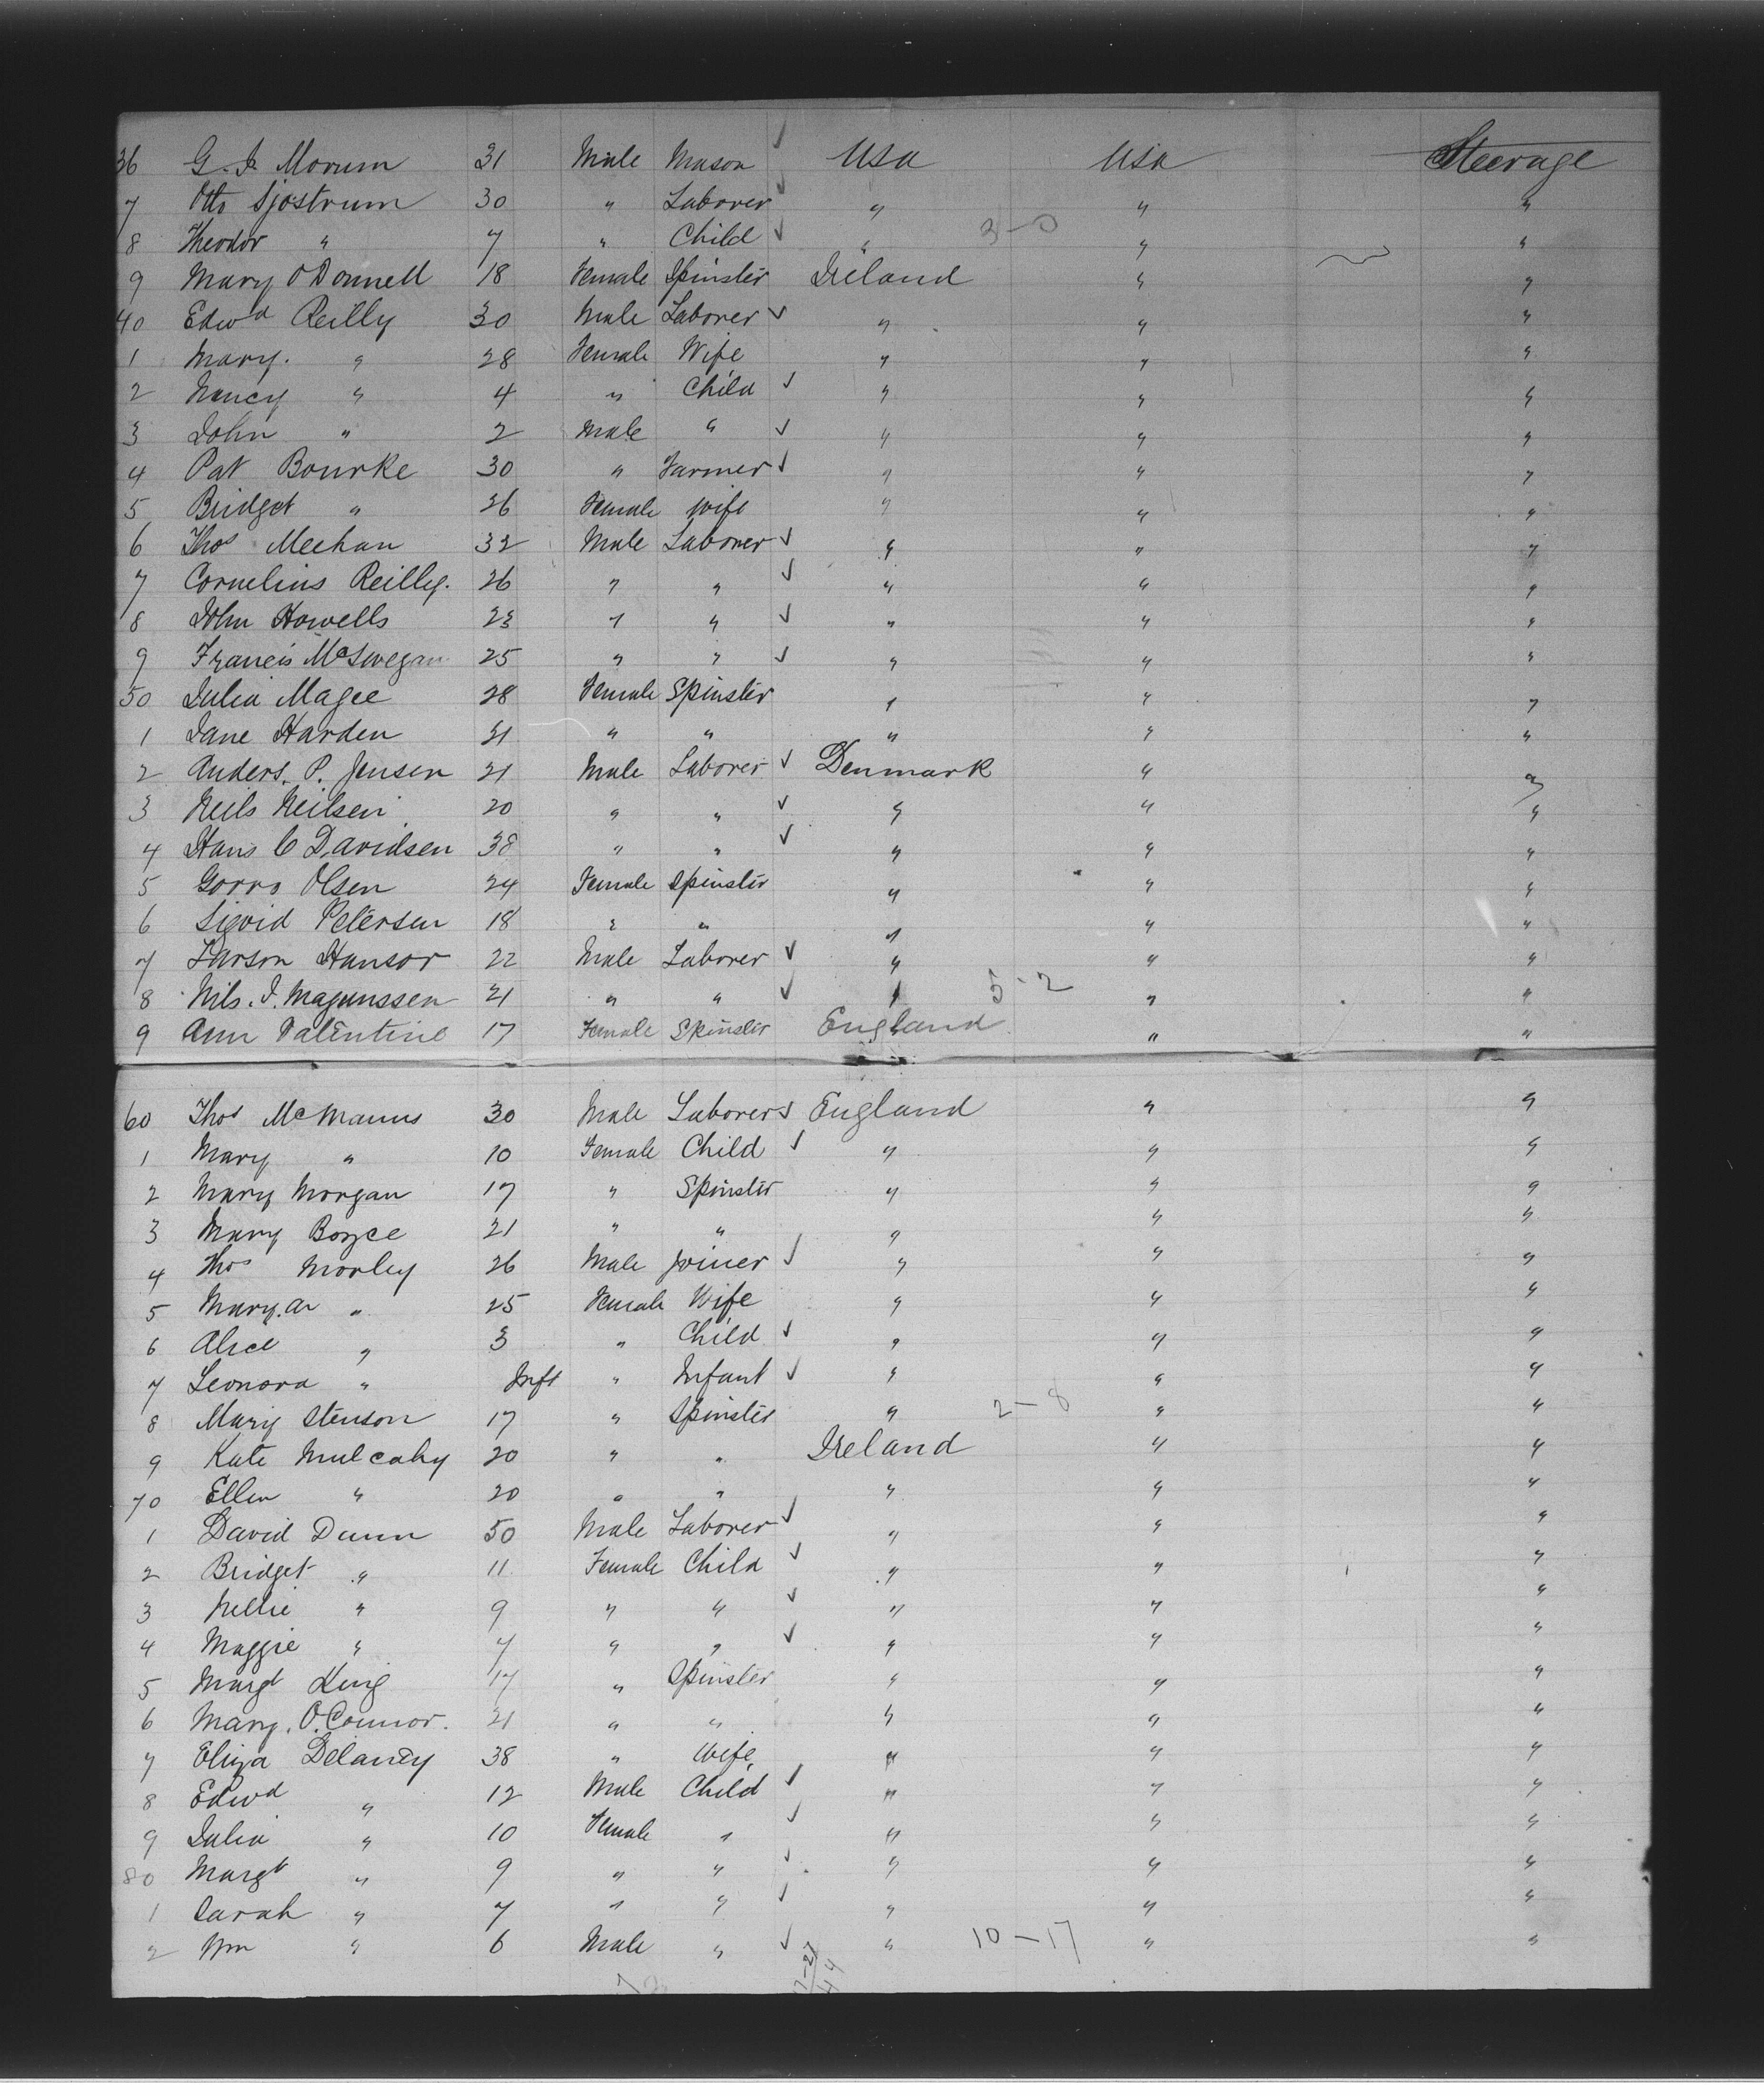 36 G. F. Morum 31 Male Mason ✓ Usa Usa Steerage
7 Otto Sjostrum 30 " Laborer ✓ " " "
8 Theodor " 7 " Child ✓ " 3-0 " "
9 Mary O'Donnell 18 Female Spinster Ireland " "
40 Edwd Reilly 30 Male Laborer ✓ " " "
1 Mary. " 28 Female Wife " " "
2 Nancy " 4 " Child ✓ " " "
3 John " 2 Male " ✓ " " "
4 Pat Bourke 30 " Farmer ✓ " " "
5 Bridget " 26 Female Wife " " "
6 Thos Meehan 32 Male Laborer ✓ " " "
7 Cornelius Reilly. 26 " " ✓ " " "
8 John Howells 23 " " ✓ " " "
9 Francis McSwegan 25 " " ✓ " " "
50 Julia Magee 28 Female Spinster " " "
1 Jane Harden 21 " " " " "
2 Anders. P. Jensen 21 Male Laborer ✓ Denmark " "
3 Neils Neilsen 20 " " ✓ " " "
4 Hans C Davidsen 38 " " ✓ " " "
5 Gorro Olsen 24 Female Spinster " " "
6 Sigvid Petersen 18 " " " " "
7 Larson Hansor 22 Male Laborer ✓ " " "
8 Nils. J. Magunssen 21 " " ✓ " 5-2 " "
9 Ann Valentine 17 Female Spinster England " "
60 Thos McManus 30 Male Laborer ✓ England " "
1 Mary " 10 Female Child ✓ " " "
2 Mary Morgan 17 " Spinster " " "
3 Mary Boyce 21 " " " " "
4 Thos Morley 26 Male Joiner ✓ " " "
5 Mary. A " 25 Female Wife " " "
6 Alice " 3 " Child ✓ " " "
7 Leonora " Inft " Infant ✓ " " "
8 Mary Stenson 17 " Spinster " 2-8 " "
9 Kate Mulcahy 20 " " Ireland " "
70 Ellen " 20 " " " " "
1 David Dunn 50 Male Laborer ✓ " " "
2 Bridget " 11 Female Child ✓ " " "
3 Nellie " 9 " " ✓ " " "
4 Maggie " 7 " " ✓ " " "
5 Margt King 17 " Spinster " " "
6 Mary. O.Connor. 21 " " " " "
7 Eliza Delaney 38 " Wife " " "
8 Edwd " 12 Male Child ✓ " " "
9 Julia " 10 Female " ✓ " " "
80 Margt " 9 " " ✓ " " "
1 Sarah " 7 " " ✓ " " "
2 Wm " 6 Male " ✓ " 10-17 " "